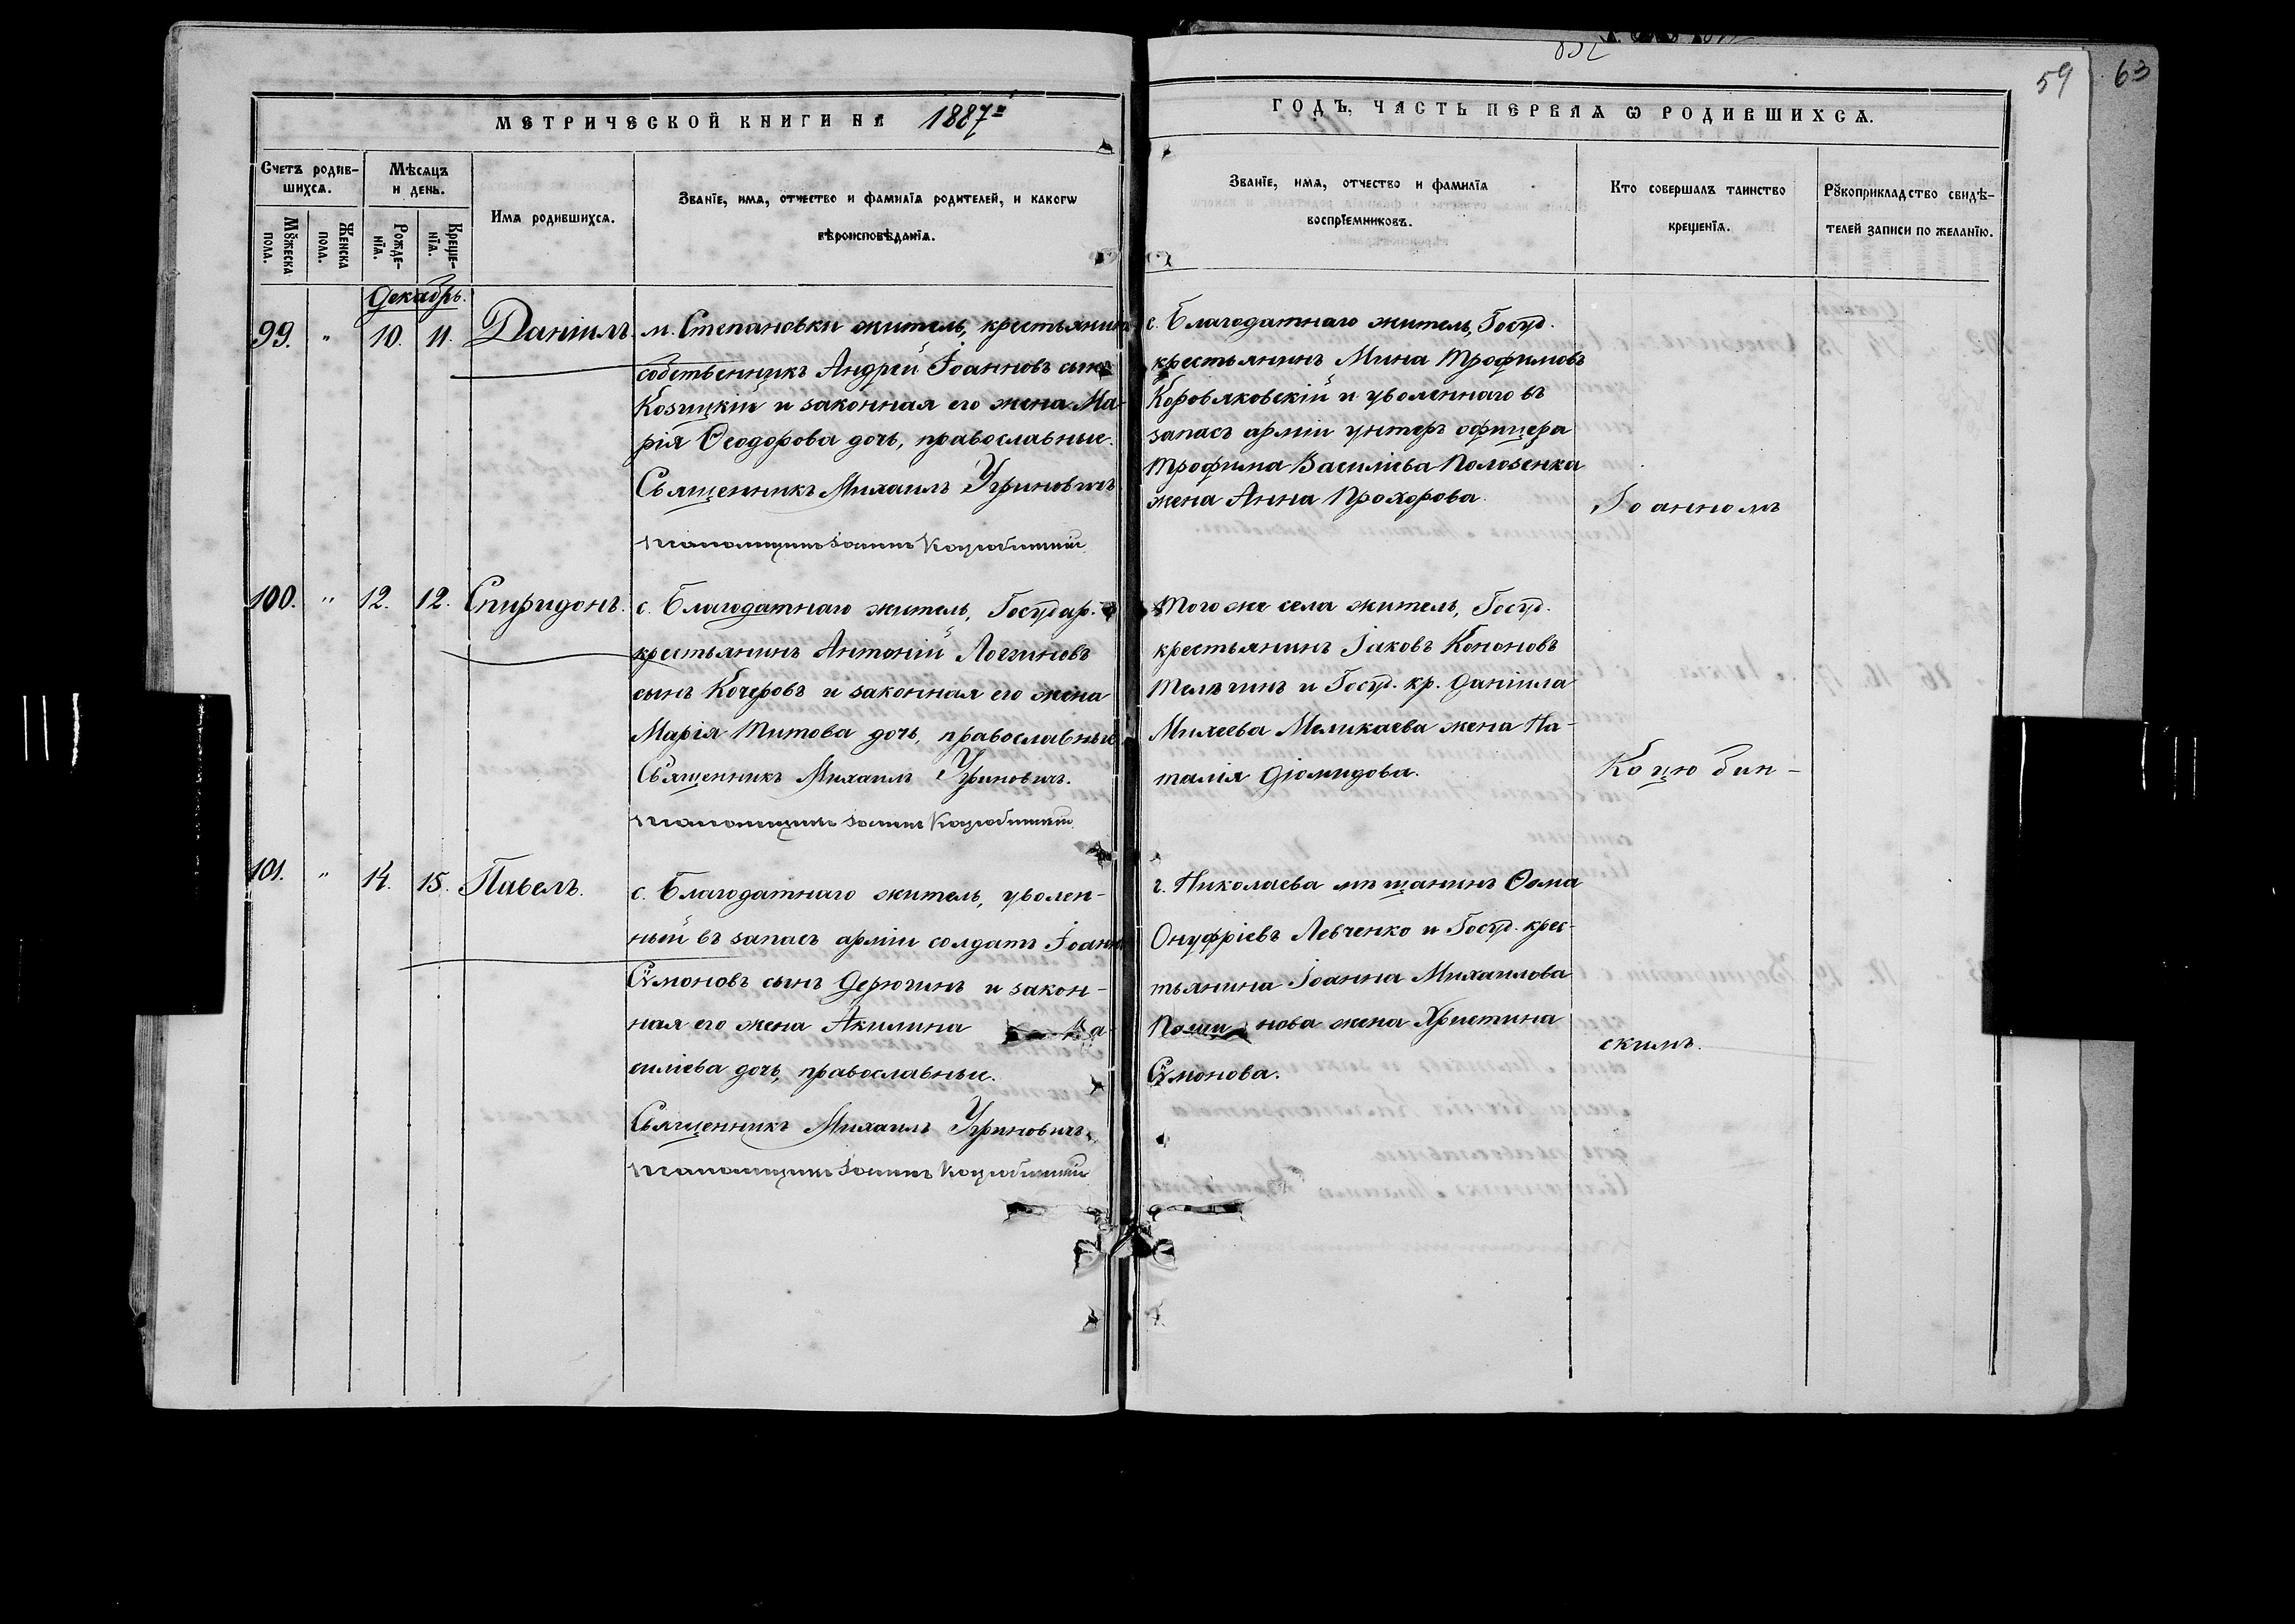 59 63
МЕТРИЧЕСКОЙ КНИГИ НА 1887й
ГОДЪ, ЧАСТЬ ПЕРВАѦ Ѡ РОДИВШИХСѦ.
Счетъ родив-
шихсѧ.
Мꙋжеска
пола.
Женска
пола.
Мѣсѧцъ
и день.
Рожде-
нїѧ.
Креще-
нїѧ.
Имѧ родившихсѧ.
Званїе, имѧ, отчество и фамилїѧ родителей, и какогѡ
вѣроисповѣданїѧ.
Званїе, имѧ, отчество и фамилїѧ
воспрїемниковъ.
Кто совершалъ таинство
крещенїѧ.
Рꙋкоприкладство свидѣ-
телей записи по желанїю.
Декабрь.
99. " 10. 11. Даніилъ.
м. Степановки житель, крестьянинъ
собственникъ Андрей Іоанновъ сынъ
Козицкій и законная его жена Ма-
рія Ѳеодорова дочь, православные.
Священникъ Михаилъ Угриновичъ
Псаломщикъ Іоаннъ Коцюбинскій
с. Благодатнаго житель, Госуд.
крестьянинъ Мина Трофимовъ
Коровяковскій и уволеннаго въ
запасъ арміи унтеръ офицера
Трофима Василіева Полозенка
жена Анна Прохорова.
Іоанномъ
100. " 12. 12. Спиридонъ.
с. Благодатнаго житель, Государ.
крестьянинъ Антоній Логгиновъ
сынъ Кочеровъ и законная его жена
Марія Титова дочь, православные
Священникъ Михаилъ Угриновичъ.
Псаломщикъ Іоаннъ Коцюбинскій
Того же села житель, Госуд.
крестьянинъ Іаковъ Кононовъ
и Госуд. кр. Даніила
Михеева Меликаева жена На-
талія Діомидова.
Коцюбин-
101. " 14. 15. Павелъ.
с. Благодатнаго житель, уволен-
ный въ запасъ арміи солдатъ Іоаннъ
Сѵмоновъ сынъ Дерюгинъ и закон-
ная его жена Акилина Ва-
силіева дочь, православные.
Священникъ Михаилъ Угриновичъ.
Псаломщикъ Іоаннъ Коцюбинскій
г. Николаева мѣщанинъ Ѳома
Онуфріевъ Левченко и Госуд. крес-
тьянина Іоанна Михаилова
нова жена Христина
Сѵмонова.
скимъ.